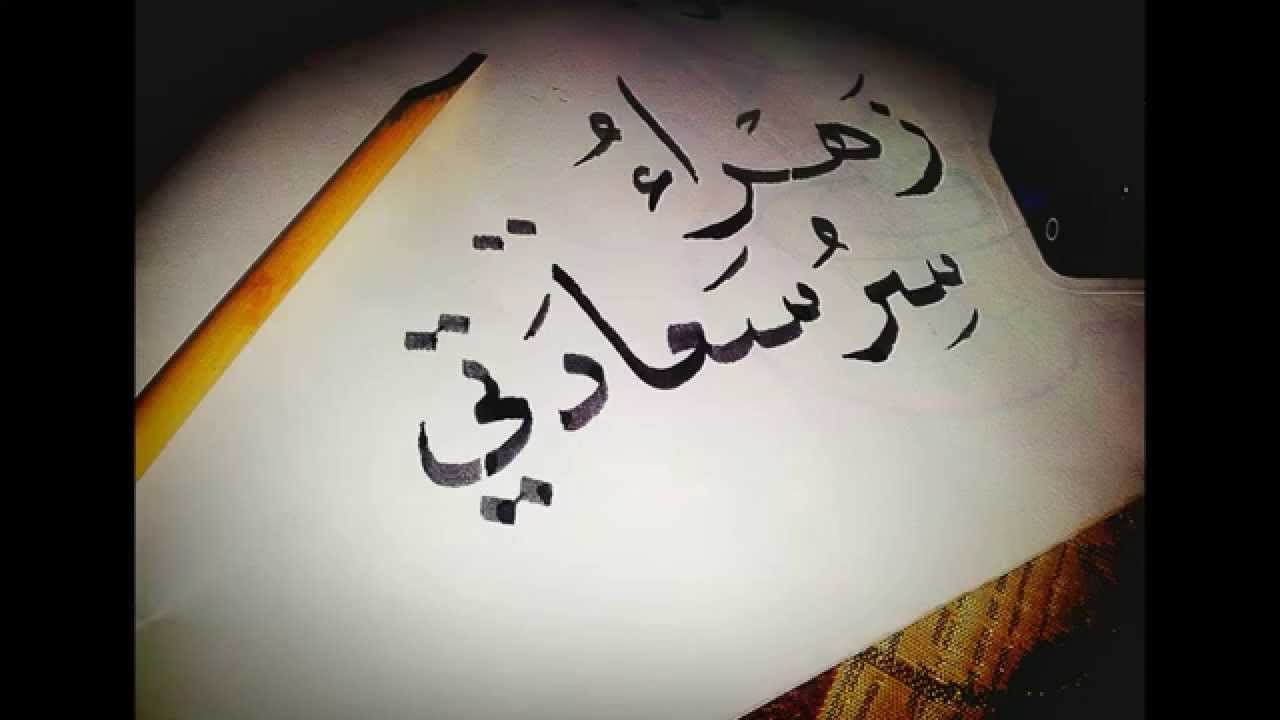 زَهْرَاءُ
سِر سُعَادَتي